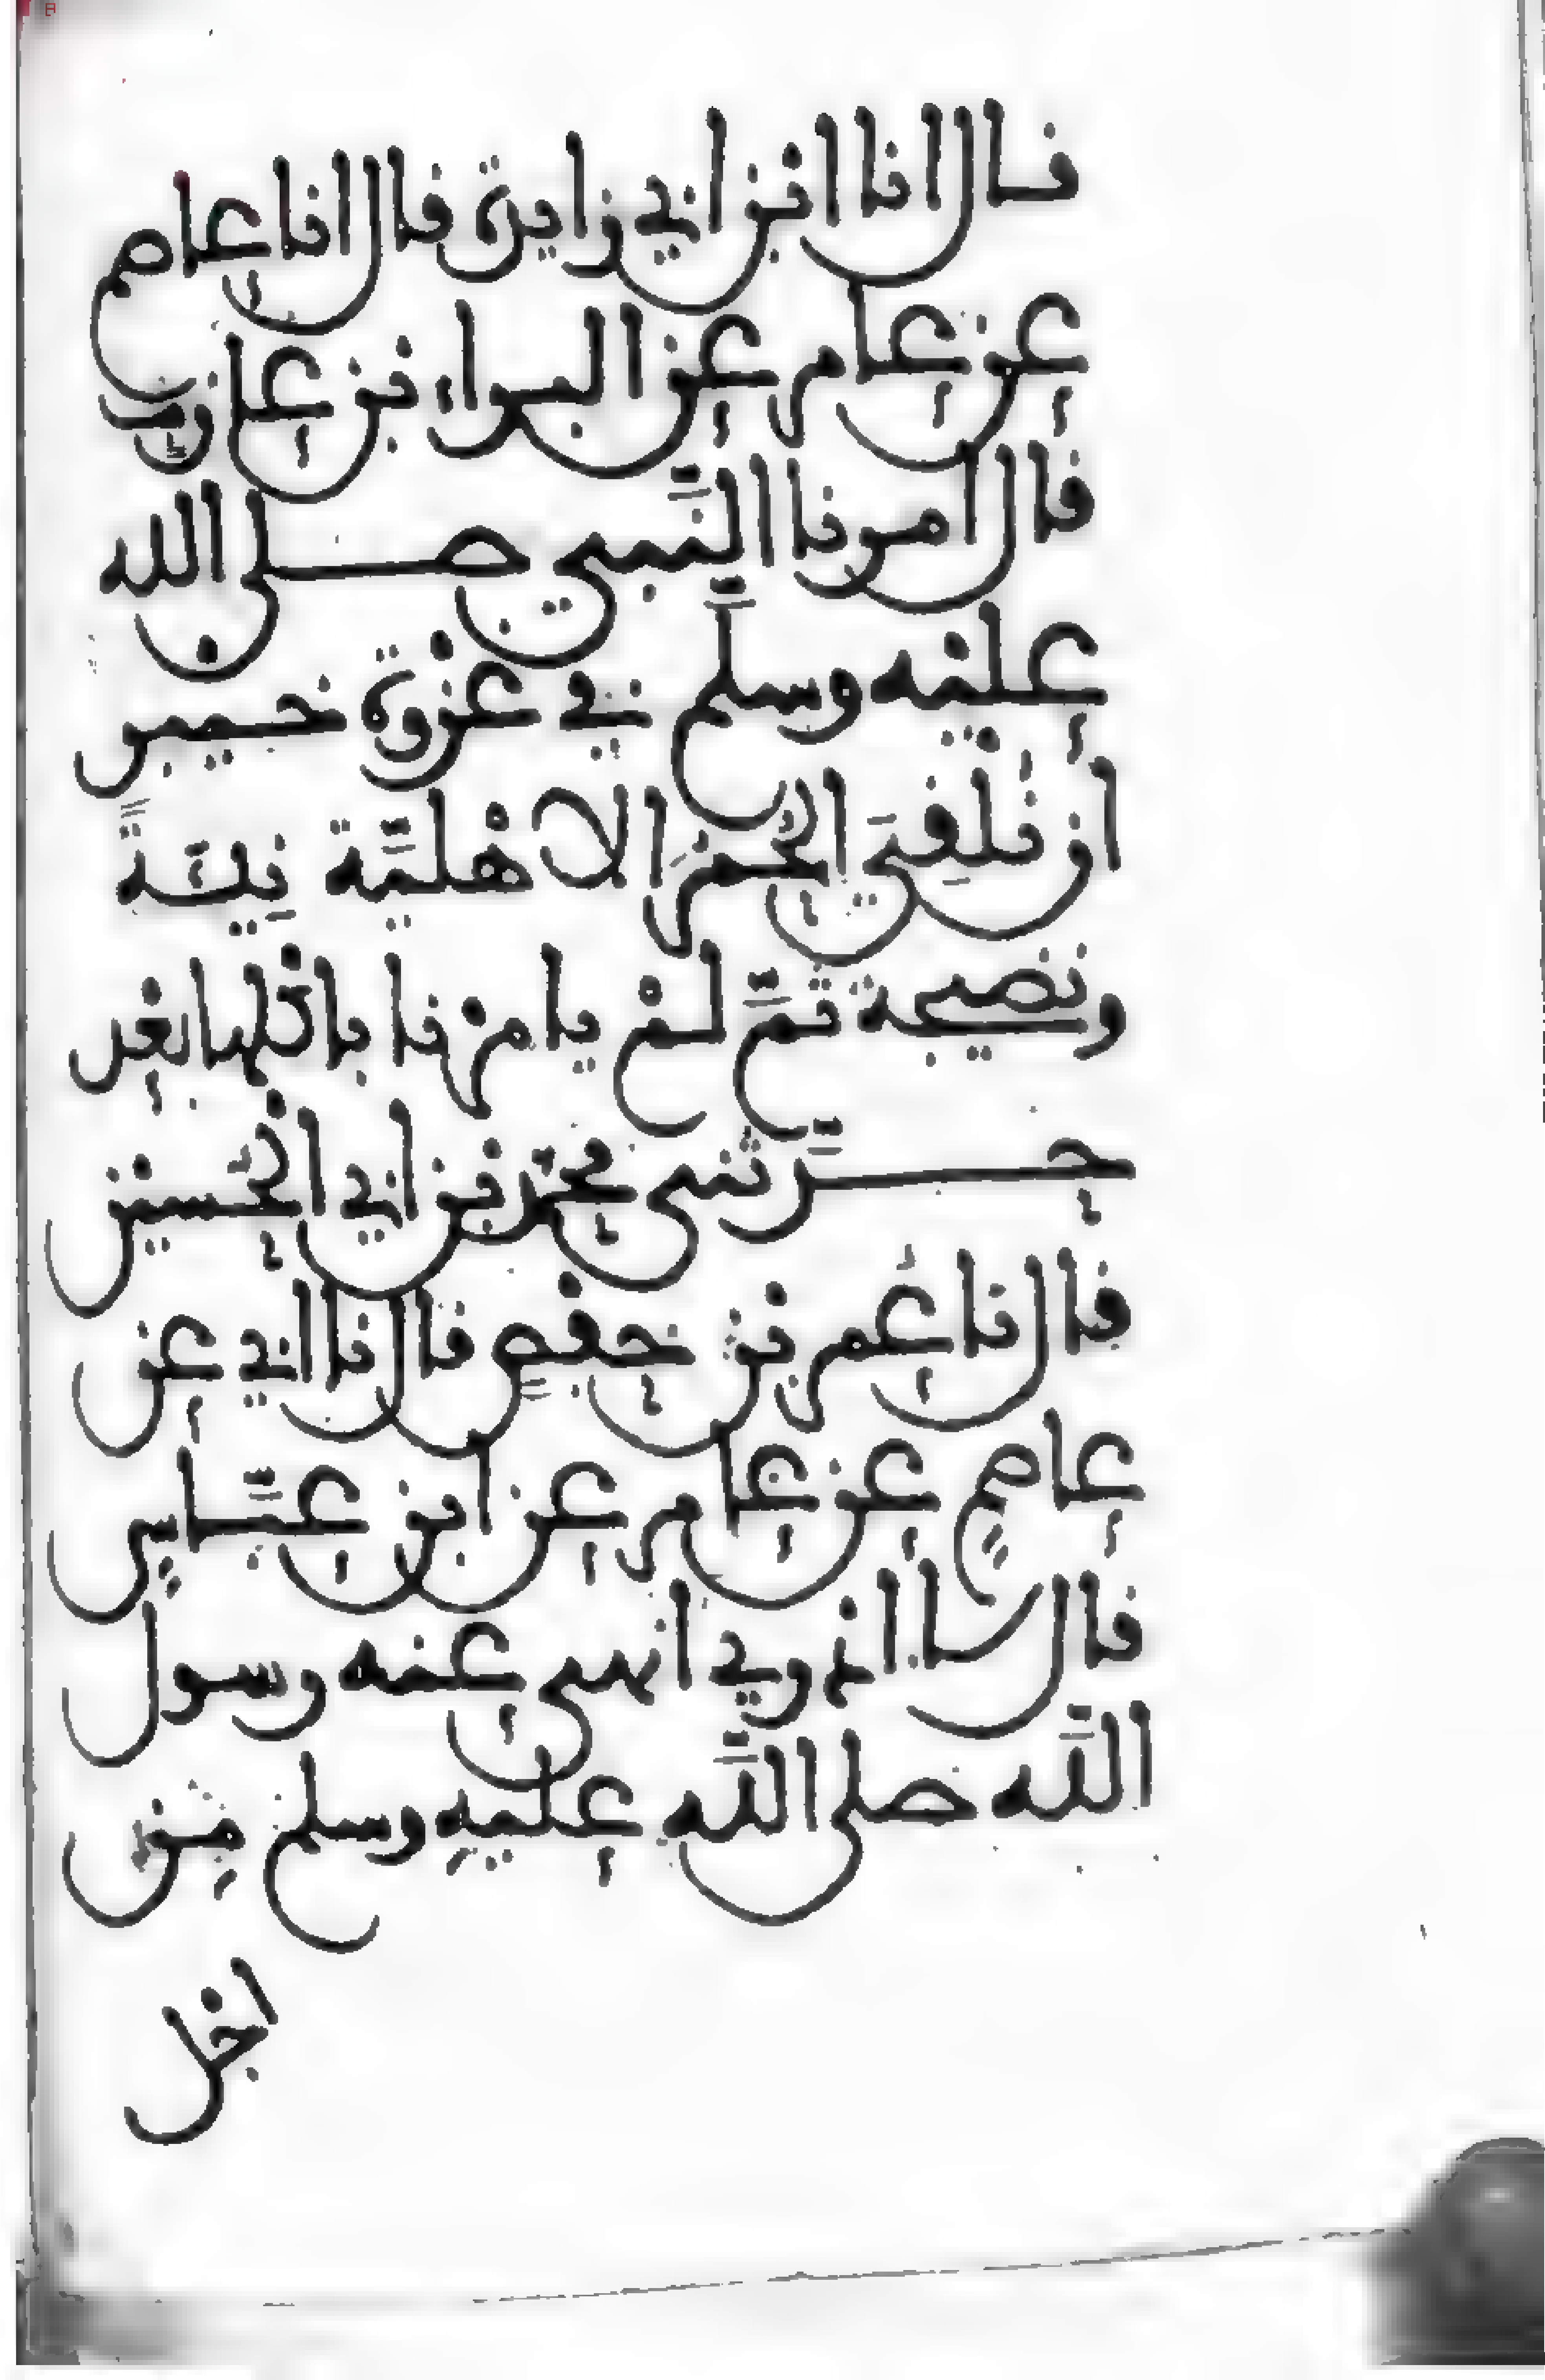 قال انا ابن ابي زايدة قال انا عاصم
عن عامر عن البراء بن عازب
قال امرنا النبي صلى الله
عليه وسلم في غزوة خيبر
ان نلقي الحمر الاهلية نيئة
ونضيجة ثم لم يامرنا باكلها بعد
حدثني محمد بن ابي الحسين
قال نا عمر بن حفص قال نا ابي عن
عاصم عن عامر عن ابن عباس
قال لا ادري انهى عنه رسول
الله صلى الله عليه وسلم من
اجل